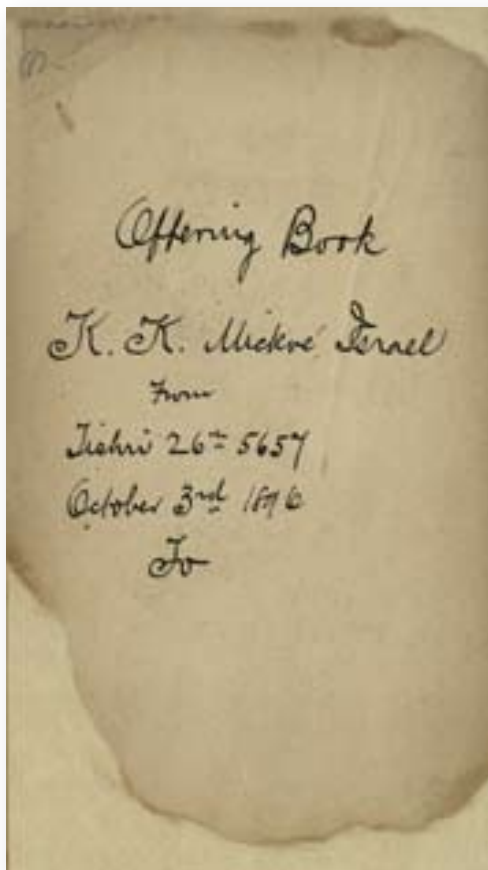 Offering Book
K. K. Mickvé Israel
From
Tishri 26th 5657
October 3rd 1896
To